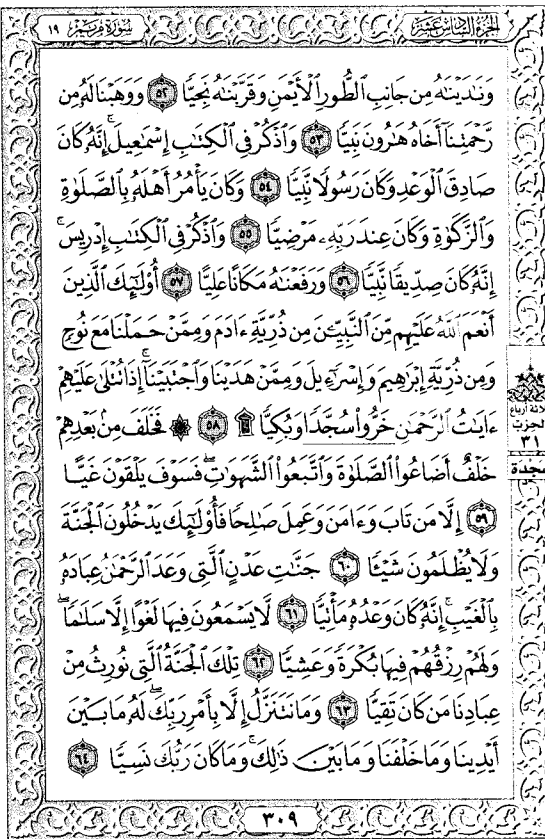 سُورَةُ مَرْيَم ١٩
الجُزْءُ السَّادِسَ عَشَرَ
وَنَٰدَيْنَٰهُ مِن جَانِبِ ٱلطُّورِ ٱلْأَيْمَنِ وَقَرَّبْنَٰهُ نَجِيًّا ٥٢ وَوَهَبْنَا لَهُۥ مِن
رَّحْمَتِنَآ أَخَاهُ هَٰرُونَ نَبِيًّا ٥٣ وَٱذْكُرْ فِى ٱلْكِتَٰبِ إِسْمَٰعِيلَ ۚ إِنَّهُۥ كَانَ
صَادِقَ ٱلْوَعْدِ وَكَانَ رَسُولًا نَّبِيًّا ٥٤ وَكَانَ يَأْمُرُ أَهْلَهُۥ بِٱلصَّلَوٰةِ
وَٱلزَّكَوٰةِ وَكَانَ عِندَ رَبِّهِۦ مَرْضِيًّا ٥٥ وَٱذْكُرْ فِى ٱلْكِتَٰبِ إِدْرِيسَ ۚ
إِنَّهُۥ كَانَ صِدِّيقًا نَّبِيًّا ٥٦ وَرَفَعْنَٰهُ مَكَانًا عَلِيًّا ٥٧ أُو۟لَٰٓئِكَ ٱلَّذِينَ
أَنْعَمَ ٱللَّهُ عَلَيْهِم مِّنَ ٱلنَّبِيِّۦنَ مِن ذُرِّيَّةِ ءَادَمَ وَمِمَّنْ حَمَلْنَا مَعَ نُوحٍ
وَمِن ذُرِّيَّةِ إِبْرَٰهِيمَ وَإِسْرَٰٓءِيلَ وَمِمَّنْ هَدَيْنَا وَٱجْتَبَيْنَآ ۚ إِذَا تُتْلَىٰ عَلَيْهِمْ
ءَايَٰتُ ٱلرَّحْمَٰنِ خَرُّوا۟ سُجَّدًا وَبُكِيًّا ۩ ٥٨ ۞ فَخَلَفَ مِنۢ بَعْدِهِمْ
خَلْفٌ أَضَاعُوا۟ ٱلصَّلَوٰةَ وَٱتَّبَعُوا۟ ٱلشَّهَوَٰتِ ۖ فَسَوْفَ يَلْقَوْنَ غَيًّا
٥٩ إِلَّا مَن تَابَ وَءَامَنَ وَعَمِلَ صَٰلِحًا فَأُو۟لَٰٓئِكَ يَدْخُلُونَ ٱلْجَنَّةَ
وَلَا يُظْلَمُونَ شَيْـًٔا ٦٠ جَنَّٰتِ عَدْنٍ ٱلَّتِى وَعَدَ ٱلرَّحْمَٰنُ عِبَادَهُۥ
بِٱلْغَيْبِ ۚ إِنَّهُۥ كَانَ وَعْدُهُۥ مَأْتِيًّا ٦١ لَّا يَسْمَعُونَ فِيهَا لَغْوًا إِلَّا سَلَٰمًا ۖ
وَلَهُمْ رِزْقُهُمْ فِيهَا بُكْرَةً وَعَشِيًّا ٦٢ تِلْكَ ٱلْجَنَّةُ ٱلَّتِى نُورِثُ مِنْ
عِبَادِنَا مَن كَانَ تَقِيًّا ٦٣ وَمَا نَتَنَزَّلُ إِلَّا بِأَمْرِ رَبِّكَ ۖ لَهُۥ مَا بَيْنَ
أَيْدِينَا وَمَا خَلْفَنَا وَمَا بَيْنَ ذَٰلِكَ ۚ وَمَا كَانَ رَبُّكَ نَسِيًّا ٦٤
أرباع
الحزب
٣١
سجدة
٣٠٩